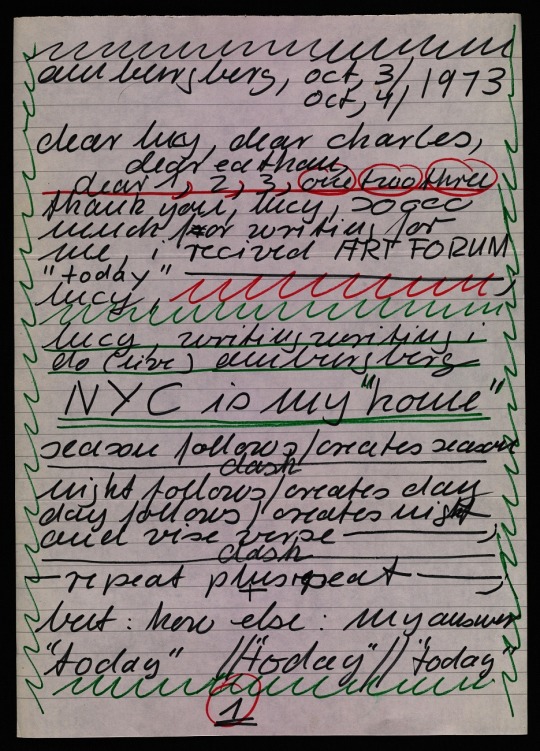 am burgberg, oct, 3/ 1973
oct, 4/
dear lucy, dear charles,
dear eathan
dear 1, 2, 3, one two three
thank you, lucy, sooooo
much for writing for
me, i recived ART FORUM
"today"
lucy,
lucy, writing writing i
do (live) am burgberg
NYC is my "home"
season follows/creates season
dash
night follows/creates day
day follows/creates night
and vise verse
dash
repeat plus repeat
+
but: how else: my answer
"today" //"today"// "today"
1